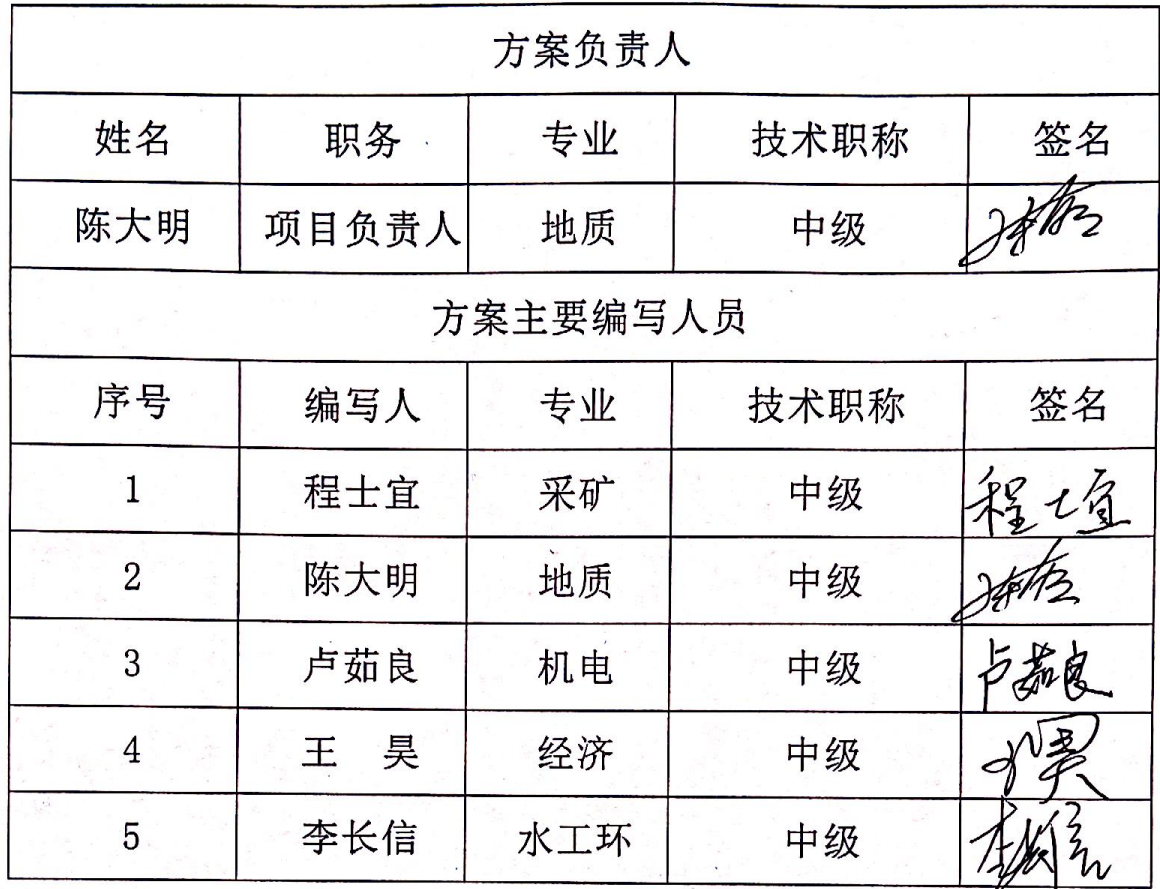 方案负责人
姓名 职务 专业 技术职称 签名
陈大明 项目负责人 地质 中级
方案主要编写人员
序号 编写人 专业 技术职称 签名
1 程士宜 采矿 中级 程士宜
2 陈大明 地质 中级
3 卢茹良 机电 中级 卢茹良
4 王 昊 经济 中级
5 李长信 水工环 中级